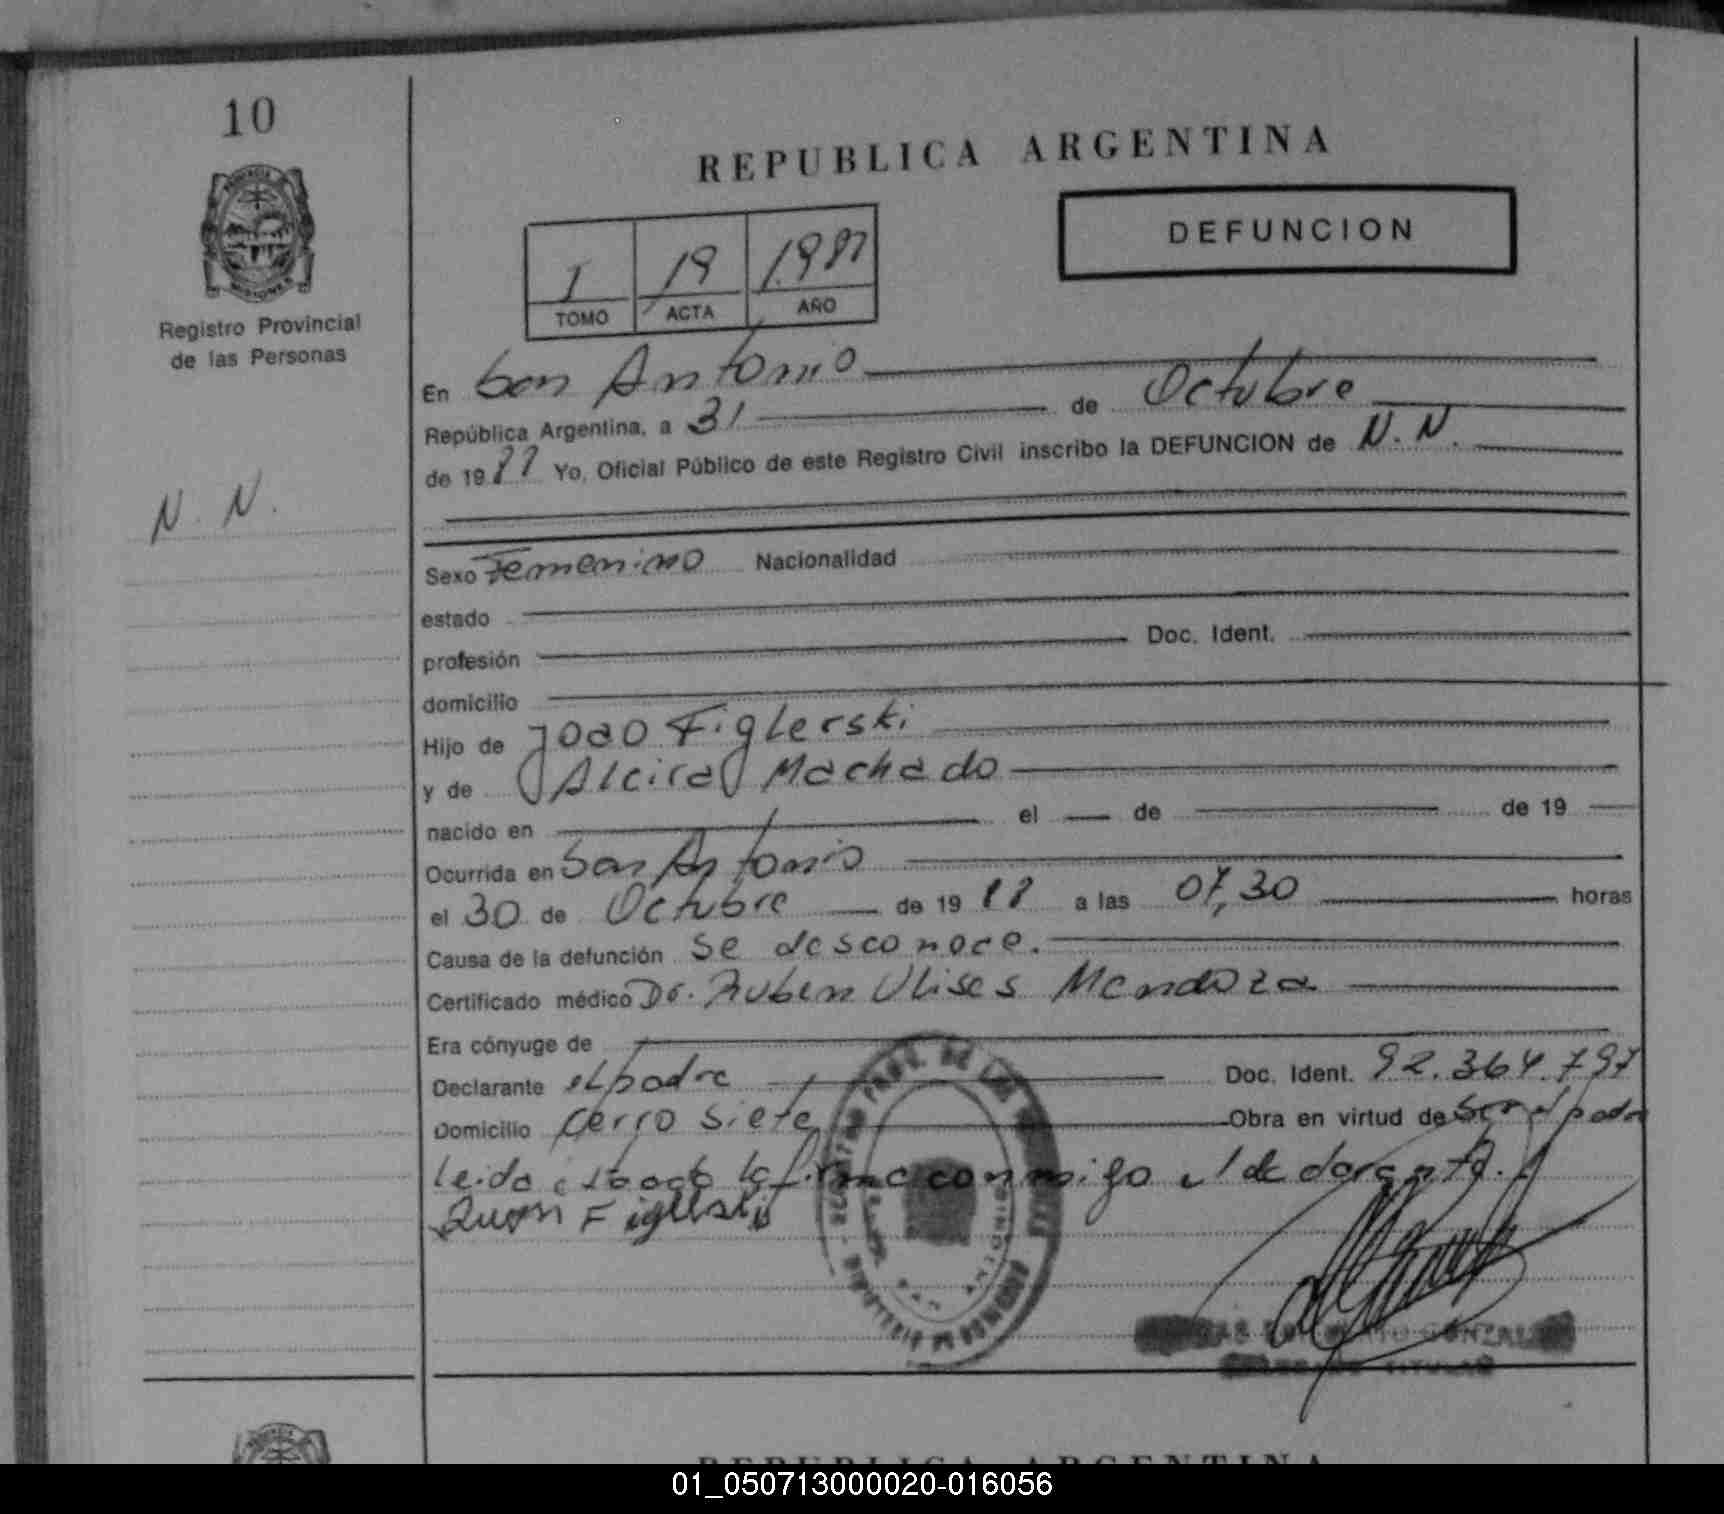 10
REPUBLICA ARGENTINA
DEFUNCION
I 19
TOMO ACTA AÑO
Registro Provincial
de las Personas
En San Antonio
República Argentina, a 31 de Octubre
de 19 Yo, Oficial Público de este Registro Civil inscribo la DEFUNCION de N. N.
N. N.
Sexo Femenino Nacionalidad
estado
profesión Doc. Ident.
domicilio
Hijo de Joao Figlerski
y de Alcira Machado
nacido en el de de 19
Ocurrida en San Antonio
el 30 de Octubre de 19 a las 07,30 horas
Causa de la defunción se desconoce.
Certificado médico Dr. Ruben Ulises Mendoza
Era cónyuge de
Declarante el padre Doc. Ident. 92.364.797
Domicilio cerro siete Obra en virtud de ser el padre
Leida el acta la firma conmigo el declarante.
REPUBLICA ARGENTINA
01_050713000020-016056